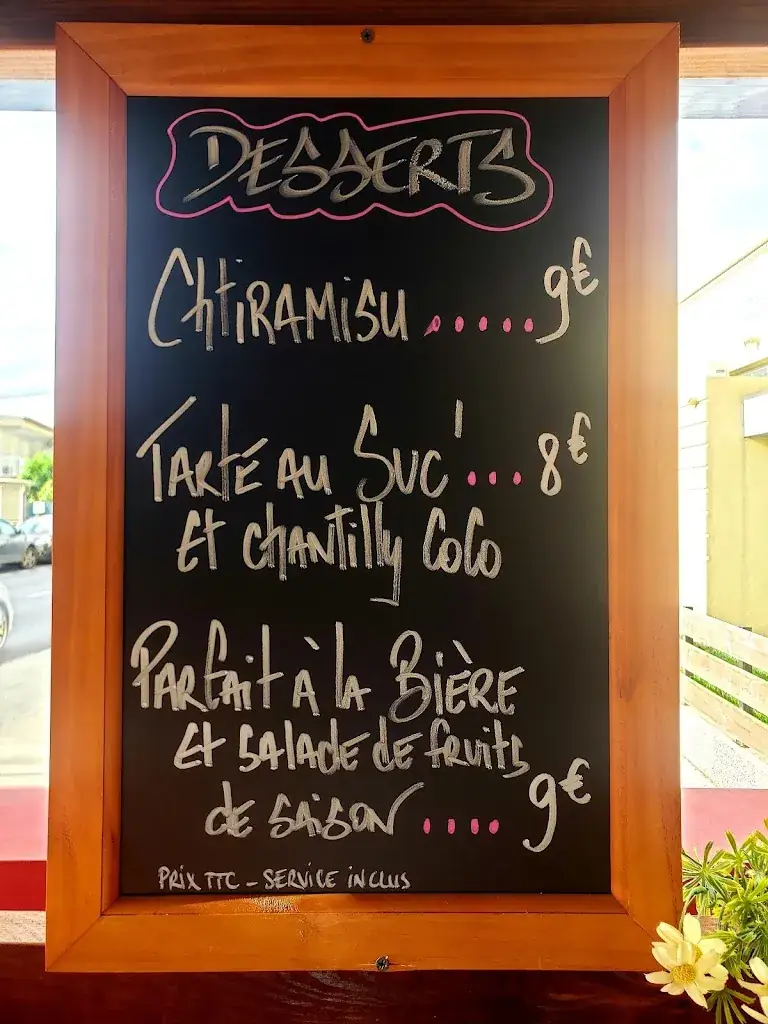 DESSERTS
ChtiRAMiSU ..... 9€
TARTE AU SUC' ... 8€
Et ChANTilly COCO
PARFait à lA BIÈRE
Et SALADE de fRuits
de SAiSON .... 9€
PRIX TTC - SERVICE INCLUS